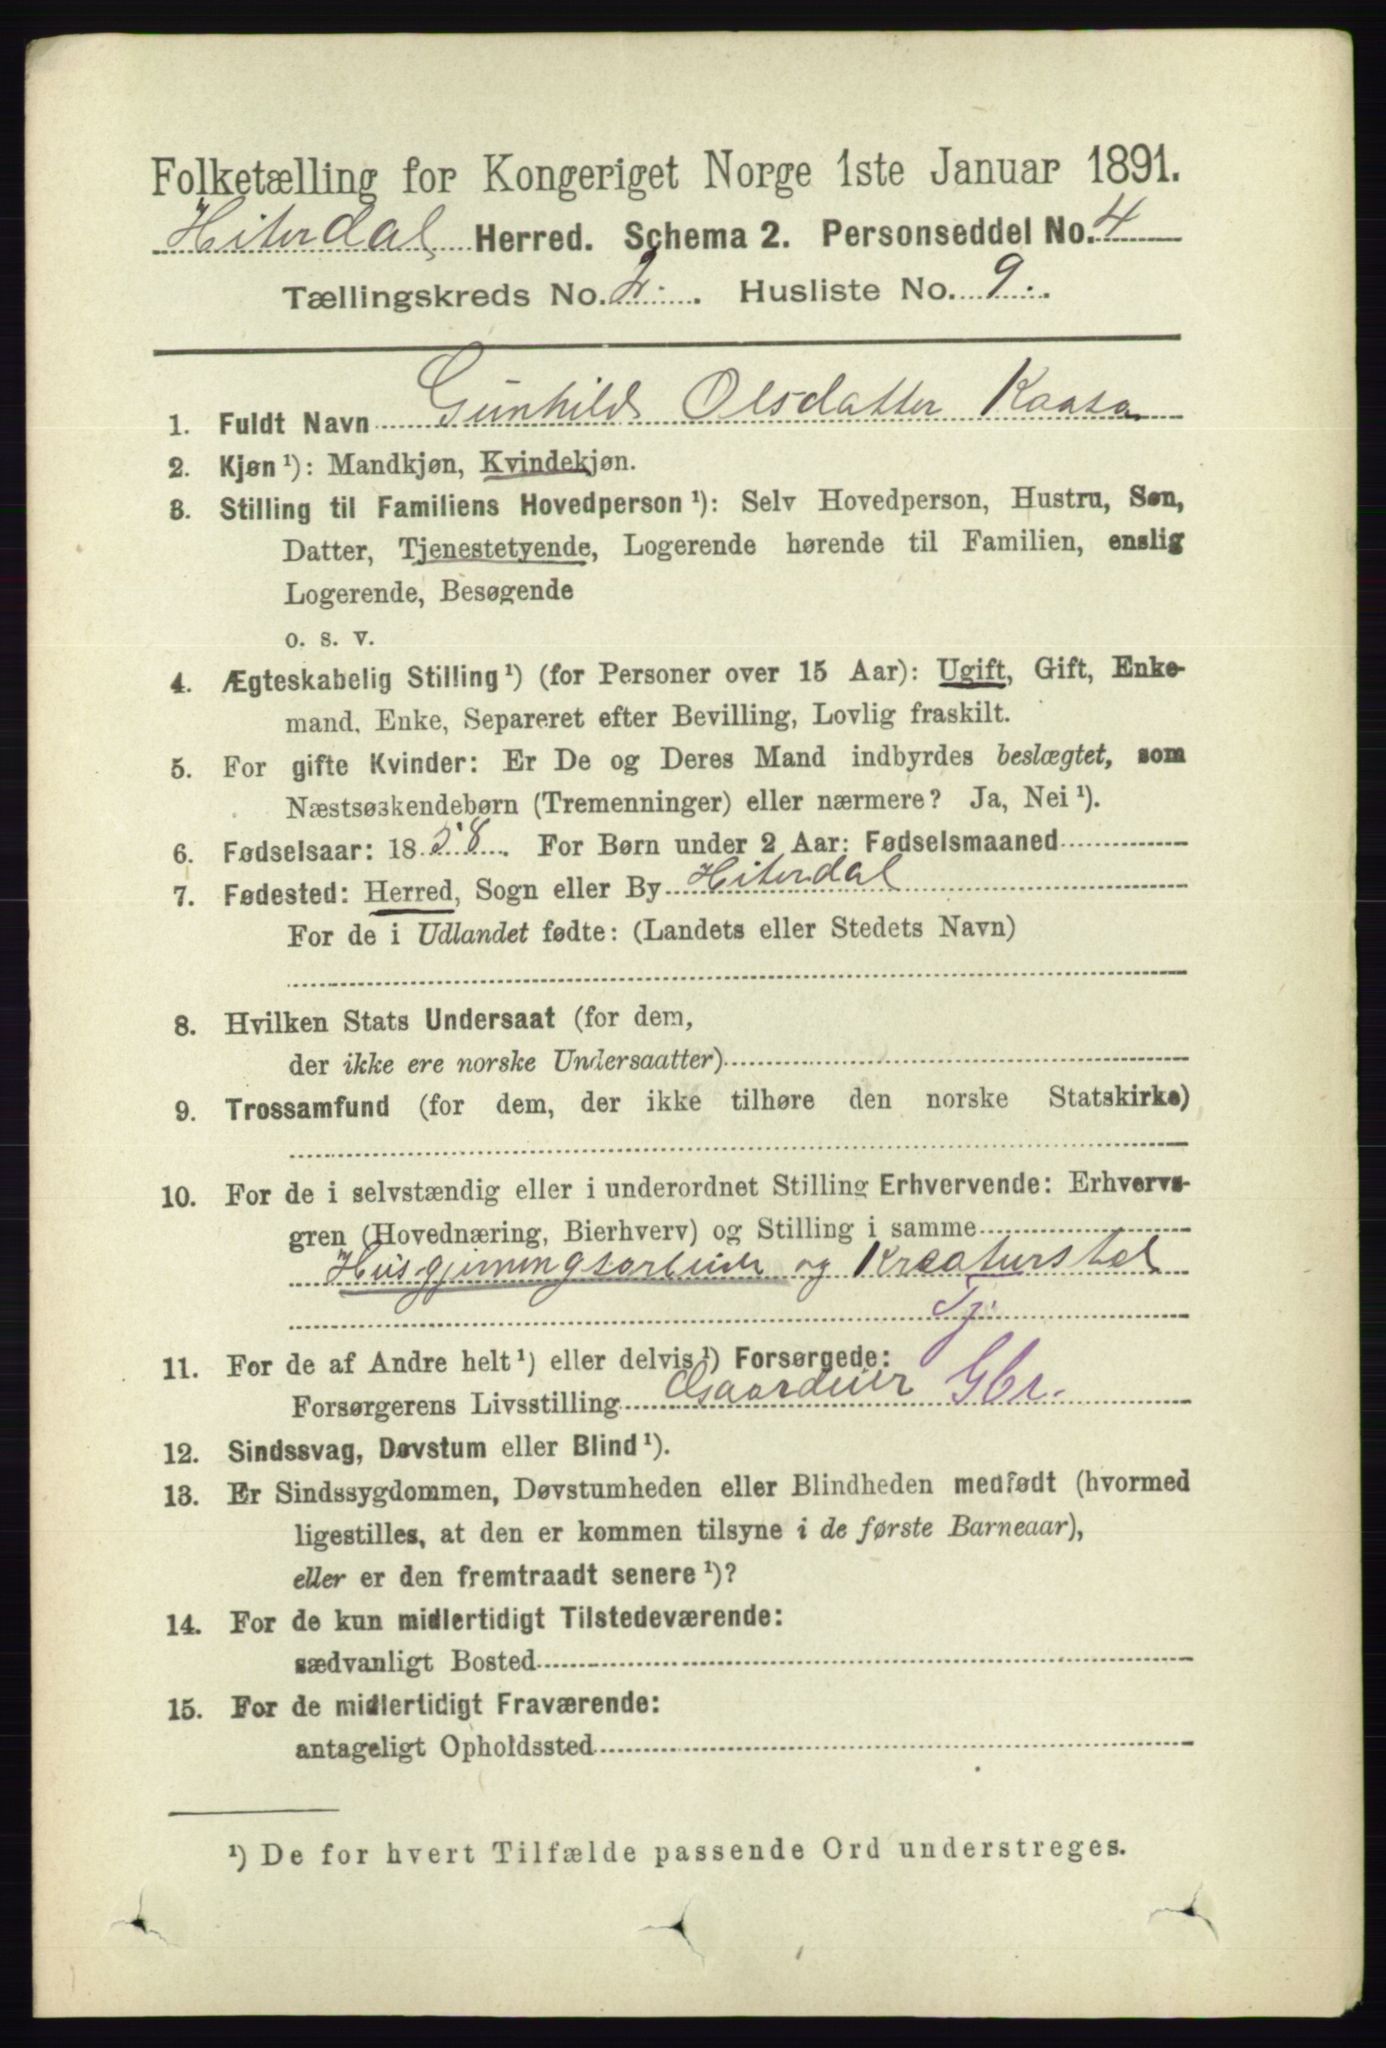 Folketælling for Kongeriget Norge 1ste Januar 1891.
Hiterdal Herred. Schema 2. Personseddel No. 4
Tællingskreds No. 2. Husliste No. 9.
1. Fuldt Navn Gunhild Olsdatter Kaasa
2. Kjøn ¹): Mandkjøn, Kvindekjøn.
3. Stilling til Familiens Hovedperson ¹): Selv Hovedperson, Hustru, Søn,
Datter, Tjenestetyende, Logerende hørende til Familien, enslig
Logerende, Besøgende
o. s. v.
4. Ægteskabelig Stilling ¹) (for Personer over 15 Aar): Ugift, Gift, Enke-
mand, Enke, Separeret efter Bevilling, Lovlig fraskilt.
5. For gifte Kvinder: Er De og Deres Mand indbyrdes beslægtet, som
Næstsøskendebørn (Tremenninger) eller nærmere? Ja, Nei ¹).
6. Fødselsaar: 1858. For Børn under 2 Aar: Fødselsmaaned
7. Fødested: Herred, Sogn eller By Hiterdal
For de i Udlandet fødte: (Landets eller Stedets Navn)
8. Hvilken Stats Undersaat (for dem,
der ikke ere norske Undersaatter)
9. Trossamfund (for dem, der ikke tilhøre den norske Statskirke)
10. For de i selvstændig eller i underordnet Stilling Erhvervende: Erhvervs-
gren (Hovednæring, Bierhverv) og Stilling i samme
Husgjerningsarbeide og Kreaturstel
Tj.
11. For de af Andre helt ¹) eller delvis ¹) Forsørgede:
Forsørgerens Livsstilling Gaardeier Gbr.
12. Sindssvag, Døvstum eller Blind ¹).
13. Er Sindssygdommen, Døvstumheden eller Blindheden medfødt (hvormed
ligestilles, at den er kommen tilsyne i de første Barneaar),
eller er den fremtraadt senere ¹)?
14. For de kun midlertidigt Tilstedeværende:
sædvanligt Bosted
15. For de midlertidigt Fraværende:
antageligt Opholdssted
¹) De for hvert Tilfælde passende Ord understreges.